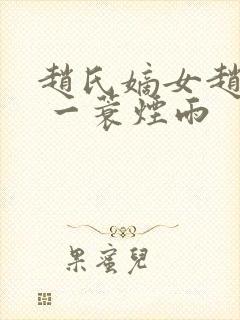 趙氏嫡女趙
一蓑煙雨
果蜜兒